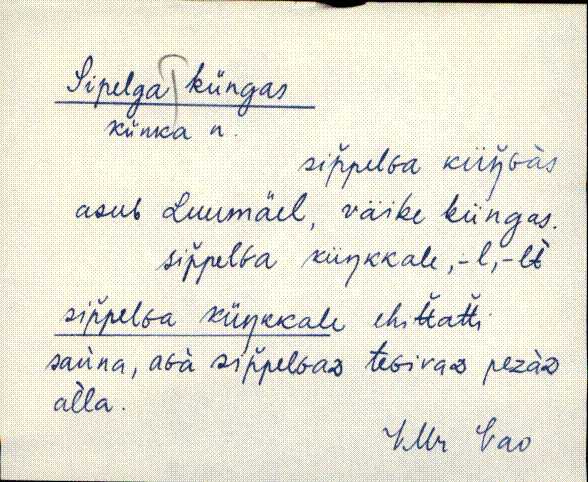 Sipelga küngas
künka n.
sip̆pelɢa küŋ̆ɢàs
asub Luumäel, väike küngas.
sip̆pelɢa küŋkkale, -l, -lt̀
sip̆pelɢa küŋkkale ehit̆tat̆ti
saùna, aɢà sip̆pelɢaᴅ teɢivaᴅ pezàᴅ
al̀la.